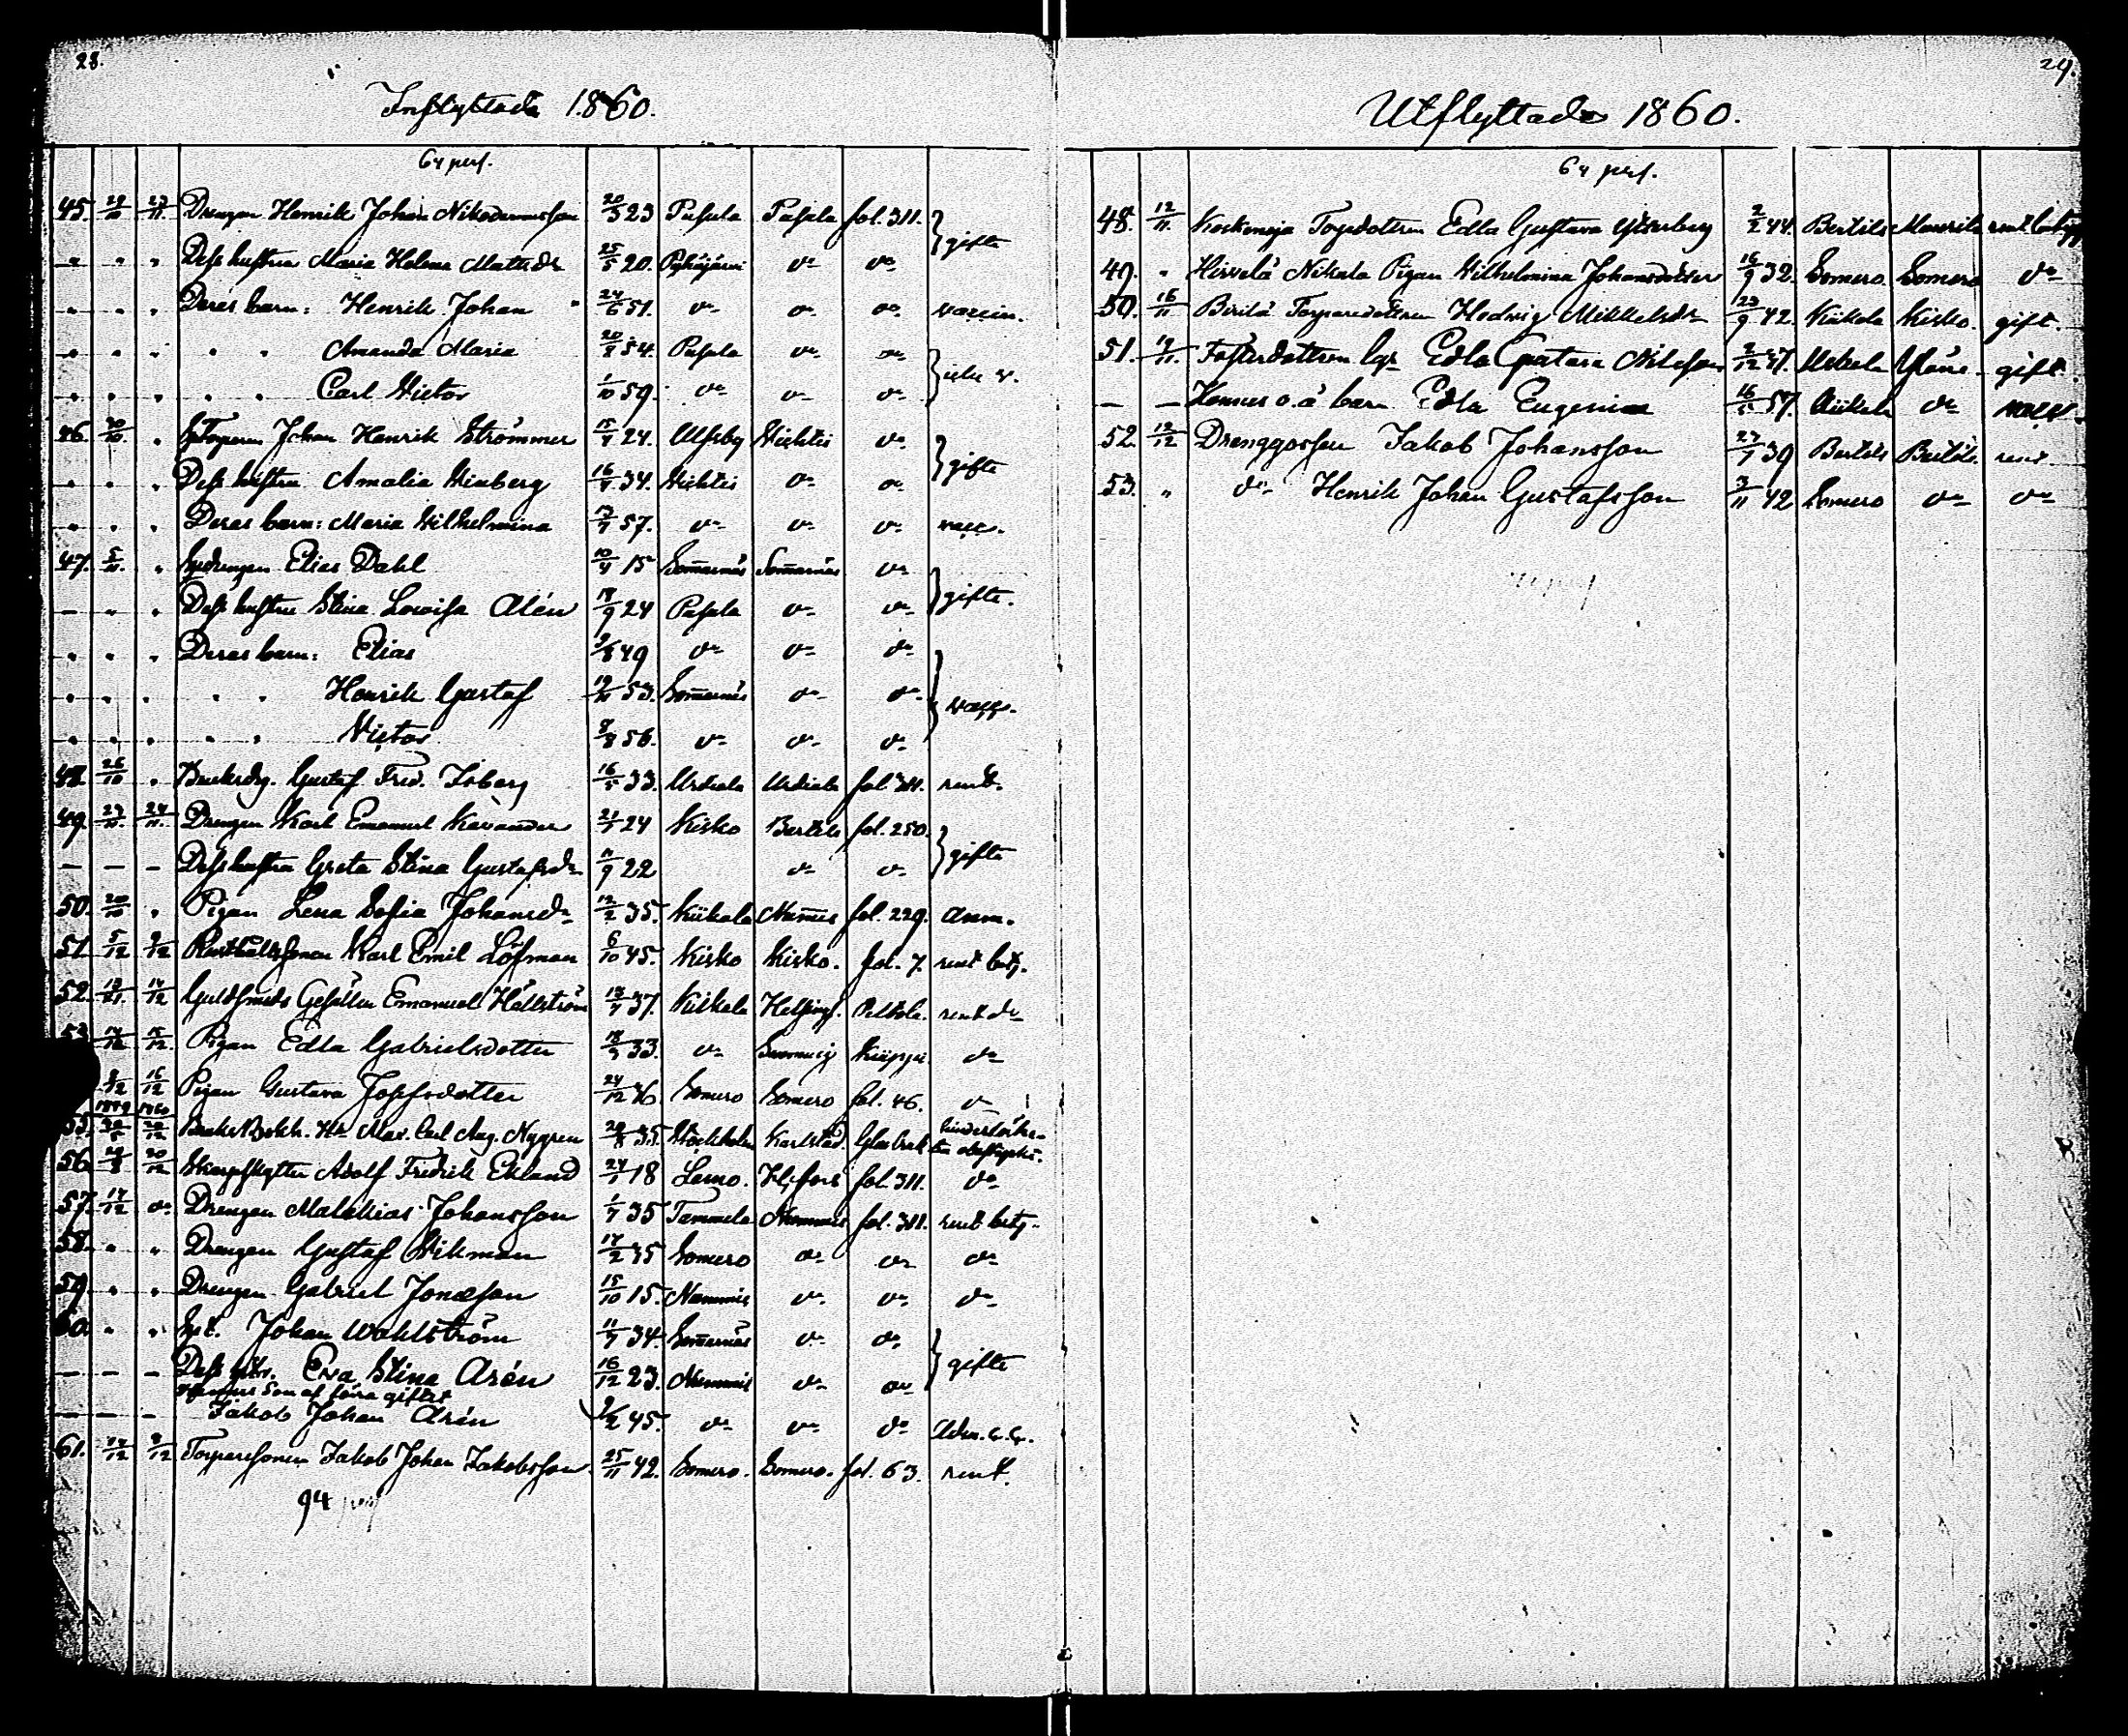 28.
Inflyttade 1860.
64 pers.
45. 29/10 23/11 Drengen Henrik Johan Nikodemusson 20/3 23 Pusula Pusula fol. 311. } gifte
— " " Dess hustru Maria Helena Mattsdr 25/5 20. Pyhäjärvi do do
" " " Deras barn: Henrik Johan 24/6 51. do do do vaccin.
" " " " " Amanda Maria 20/2 54. Pusula do do } icke v.
" " " " " Carl Victor 1/10 59. do do do
46. 30/10. " Johan Henrik Strömmer 15/4 24. Ulfsby Wichtis do } gifte
" " " Dess hustru Amalia Winberg 16/4 34. Wichtis do do
" " " Deras barn: Maria Wilhelmina 13/7 57. do do do vacc.
47. 5/11. " Elias Dahl 10/4 15 Sommarnäs Sommarnäs do } gifte.
— " " Dess hustru Stina Lovisa Alén 18/9 24 Pusula do do
" " " Deras barn: Elias 3/8 49 do do do
" " " " " Henrik Gustaf 19/11 53. Sommarnäs do do } vacc.
" " " " " Victor 8/8 56. do do do
48. 26/10 " Gustaf Fred. Isberg 16/5 33. Urdiala Urdiala fol 311. rent.
49. 23/11. 24/11. Drengen Karl Emanuel Kavander 21/1 24 Kisko Bertils fol. 250. } gifte
— — — Dess hustru Greta Stina Gustafsdr 11/9 22 do do
50. 20/10 " Pigan Lena Sofia Johansdr 12/2 35. Kiikala Nummis fol. 229. anm.
51. 5/12 9/12 Karl Emil Löfman 6/10 45. Kisko Kisko. fol. 7. rent betg.
52. 12/11. 14/12 Guldsmeds Gesällen Emanuel Hällström 13/4 37. Kiikala Helsingf. rent do
53. 14/12 15/12. Pigan Edla Gabrielsdotter 18/9 33. do do
9/12 16/12 Pigan Gustava Josefsdotter 24/12 36. Somero Somero fol. 46. do
1859 1860
55. 30/5 20/12 Carl Aug. Nygren 20/8 35. Stockholm Karlstad. Glasbruk
56. 29/8 20/12 Adolf Fredrik Eklund 24/1 18 Lemo. H:fors fol. 311. do
57. 14/12 do Drengen Malakias Johansson 1/7 35 Tammela Nummis fol. 311. rent betg.
58. " " Drengen Gustaf Wikman 17/2 35 Somero do do do
59 " " Drengen Gabriel Jonasson 15/10 15. Nummis do do do
60. " " Johan Wahlström 11/7 34. Sommarnäs do do } gifte
— — — Dess hstr. Eva Stina Arén 16/12 23. Nummis do do
Hennes Son af förra giftet
— — — Jakob Johan Arén 9/2 45. do do do
61. 14/12 Torparesonen Jakob Johan Jakobsson 25/11 42. Somero. Somero. fol. 63. rent.
94
29.
Utflyttade 1860.
64 pers.
48. 12/11. Torpdottren Edla Gustava Österberg 2/2 44. Bertils rent betyg
49. " Nikala Pigan Wilhelmina Johansdotter 16/9 32. Somero. Somero do
50. 16/11 Torparedottren Hedwig Mikkelsdr 23/9 42. Kiikala Kisko. gift.
51. 19/11. Edla Gustava Nilsson gift.
— — Hennes o.ä. barn Edla Eugenia 57. Kiikala do vacc.
52. 12/12 Drenggossen Jakob Johansson 27/7 39 Bertils Bertils. rent
53. " do Henrik Johan Gustafsson 3/11 42 Somero do do